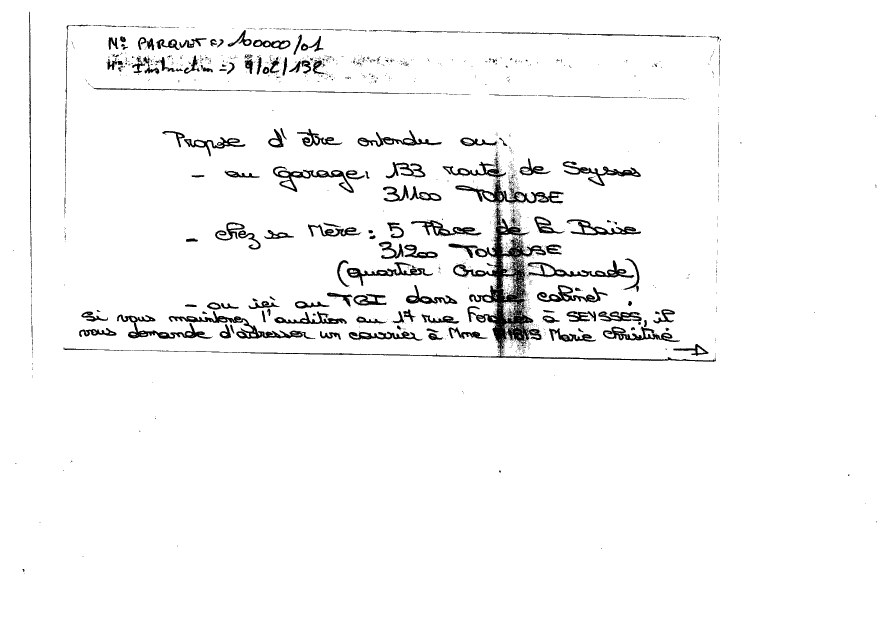 N° PARQUET => 100000/01
N° Instruction => 9/02/132
Propose d'être entendu ou:
- au Garage: 133 route de Seysses
31100 TOULOUSE
- chez sa Mère: 5 Place de la Baïse
31200 TOULOUSE
(quartier: Croix Daurade)
- ou ici au TGI dans votre cabinet!
Si vous maintenez l'audition au 17 rue à SEYSSES, il
vous demande d'adresser un courrier à Mme Marie Christine